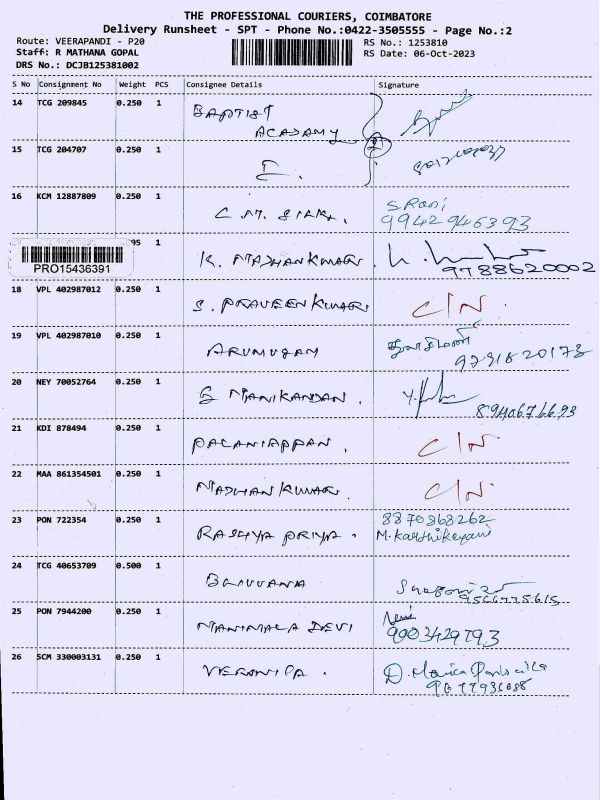 THE PROFESSIONAL COURIERS, COIMBATORE
Delivery Runsheet - SPT - Phone No.:0422-3505555 - Page No.:2
Route: VEERAPANDI - P20
Staff: R MATHANA GOPAL
DRS No.: DCJB125381002
RS No.: 1253810
RS Date: 06-Oct-2023
S No Consignment No Weight PCS Consignee Details Signature
14 TCG 209845 0.250 1 BAPTIST
ACADAMY
15 TCG 204707 0.250 1
16 KCM 12887809 0.250 1 C.M. S.Rani
9942946393
95 1 K. MADHANKUMAR.
9788620002
PRO15436391
18 VPL 402987012 0.250 1 S. PRAVEENKUMAR C/N.
19 VPL 402987010 0.250 1 ARUMUGAM
9791820173
20 NEY 70052764 0.250 1 S MANIKANDAN.
8940676693
21 KDI 878494 0.250 1 PALANIAPPAN. C/N.
22 MAA 861354501 0.250 1 MADHANKUMAR. C/N.
23 PON 722354 0.250 1 PRIYA. 8870868262
M.Karthikeyani
24 TCG 40653709 0.500 1 BHUVANA
9566775615
25 PON 7944200 0.250 1 MANIMALA DEVI
9003429793
26 SCM 330003131 0.250 1 VERONICA. D. Monica